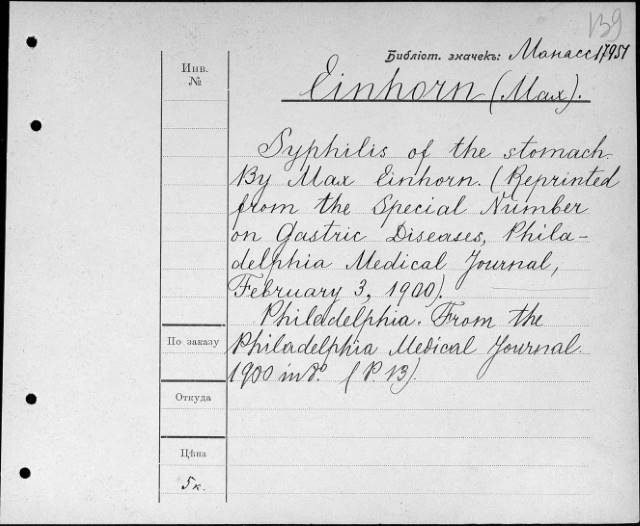 139
Библіот. значекъ: Манасс 17951
Инв.
№
Einhorn (Max).
Syphilis of the stomach.
By Max Einhorn. (Reprinted
from the Special Number
on Gastric Diseases, Phila-
delphia Medical Journal,
February 3, 1900).
Philadelphia. From the
По заказу
Philadelphia Medical Journal.
1900 in 8°. (P. 13).
Откуда
Цѣна
5 к.